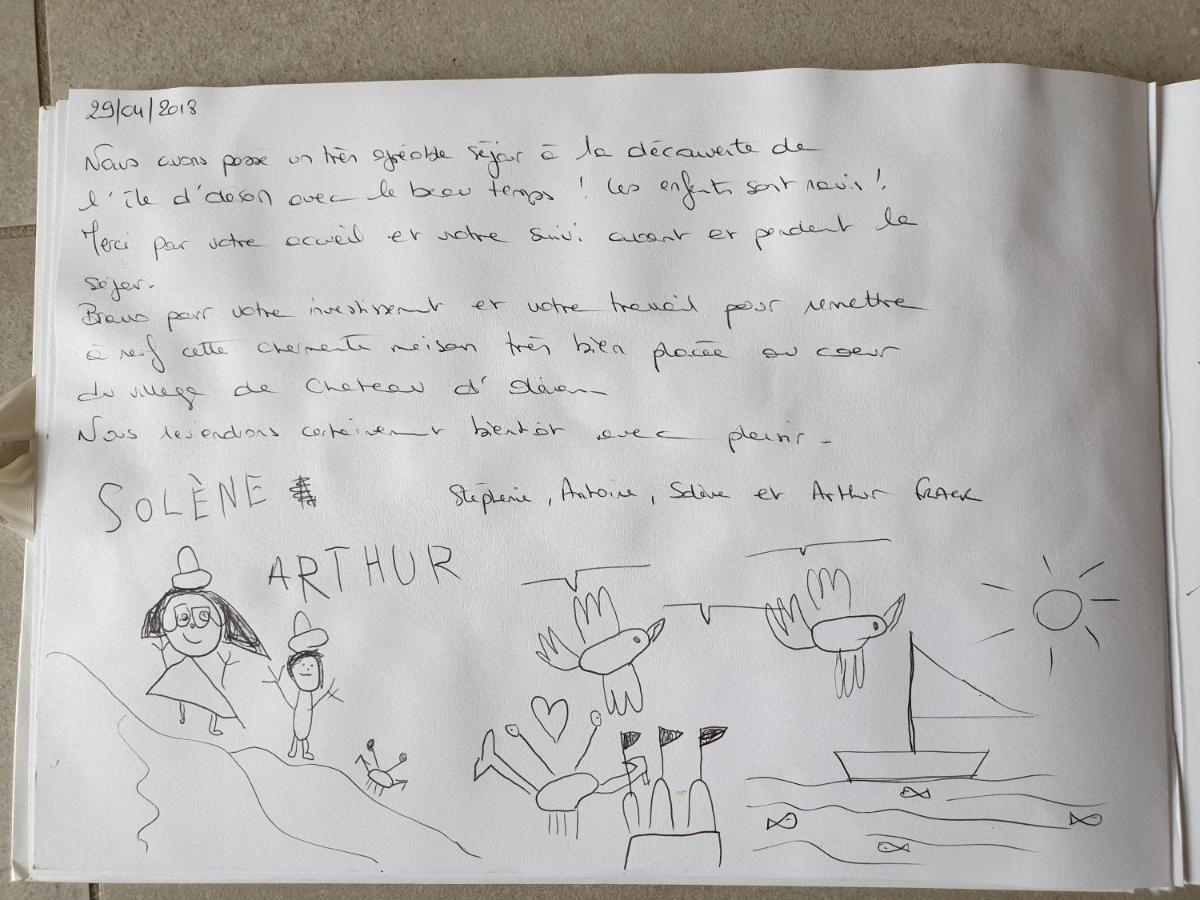 29/04/2018
Nous avons passé un très agréable séjour à la découverte de
l'île d'oléron avec le beau temps ! Les enfants sont ravis !
Merci pour votre accueil et votre suivi avant et pendant le
séjour.
Bravo pour votre investissement et votre travail pour remettre
à neuf cette charmante maison très bien placée au coeur
du village de Chateau d'Oléron
Nous reviendrons certainement bientôt avec plaisir -
SOLÈNE
Stéphanie, Antoine, Solène et Arthur
ARTHUR